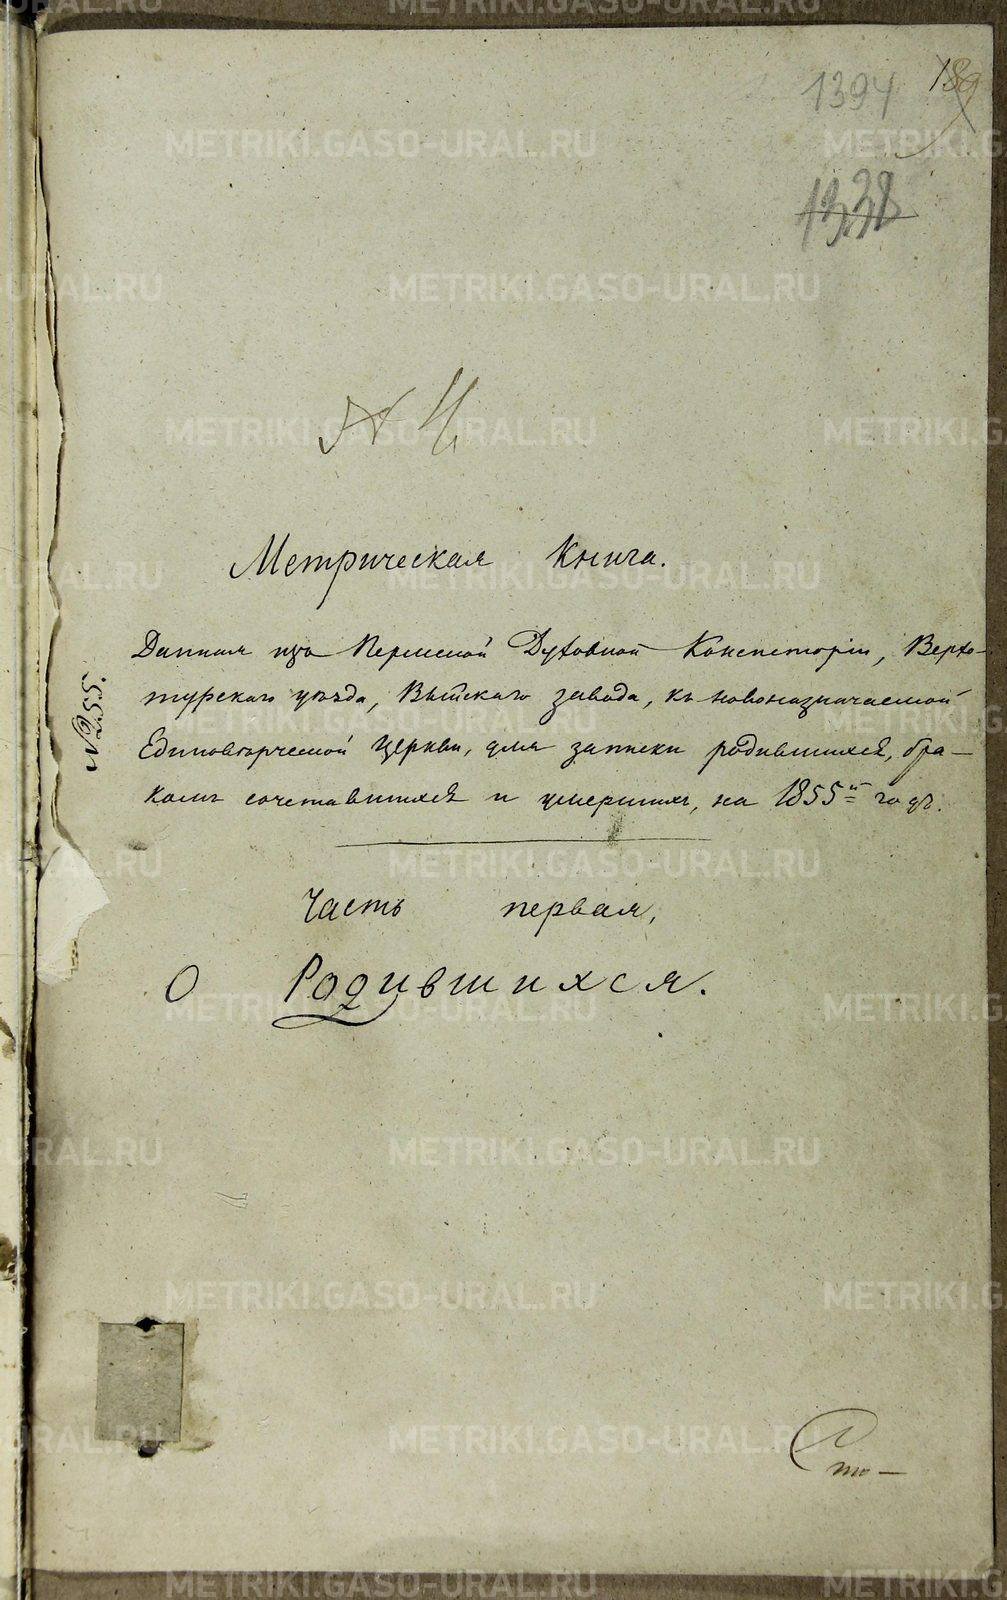 1394
189
1338
№ 4
Метрическая Книга.
Данная изъ Пермской Духовной Консисторіи, Верхо-
турскаго уѣзда, Выйскаго завода, къ новоназначаемой
Единовѣрческой церкви, для записки родившихся, бра-
комъ сочетавшихся и умершихъ, на 1855й годъ.
№255.
Часть первая,
О Родившихся.
METRIKI.GASO-URAL.RU